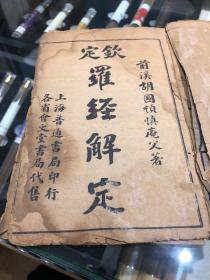 欽定
前溪胡國禎慎庵父著
羅經解定
上海普通書局印行
各省會文堂書局代售